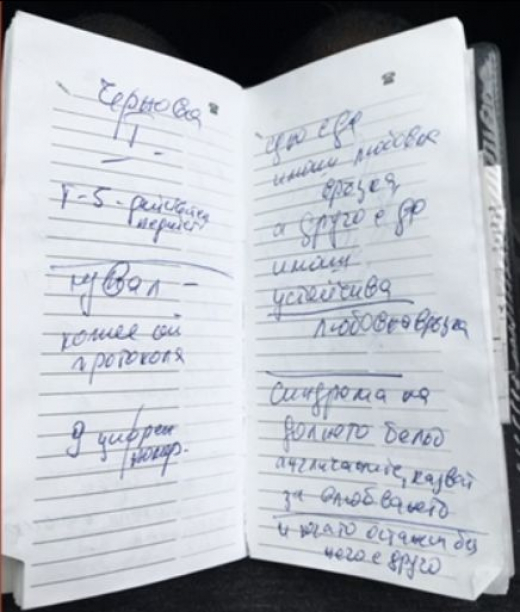 Чернова
II
T-5-
нувал -
копие от
протокола
9 цифрен
номер.
едно е да
имаш любовна
връзка
а друго е да
имаш
устойчива
любовна връзка
Синдрома на
долното бельо
англичаните казват
за влюбването
и когато останеш без
него е друго